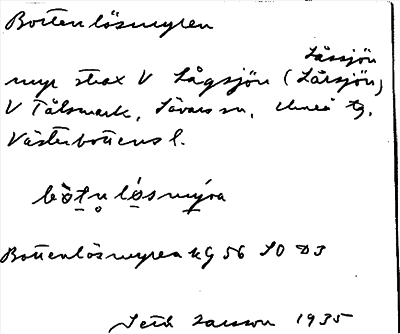 Bottenlösmyren
Låssjön
myr strax V Lågsjön (Lårsjön)
V Tålsmark, Sävars sn, Umeå tg,
Västerbottens l.
bòtn lósmýra
Bottenlösmyren kg 56 SO D3
Seth Larsson 1935